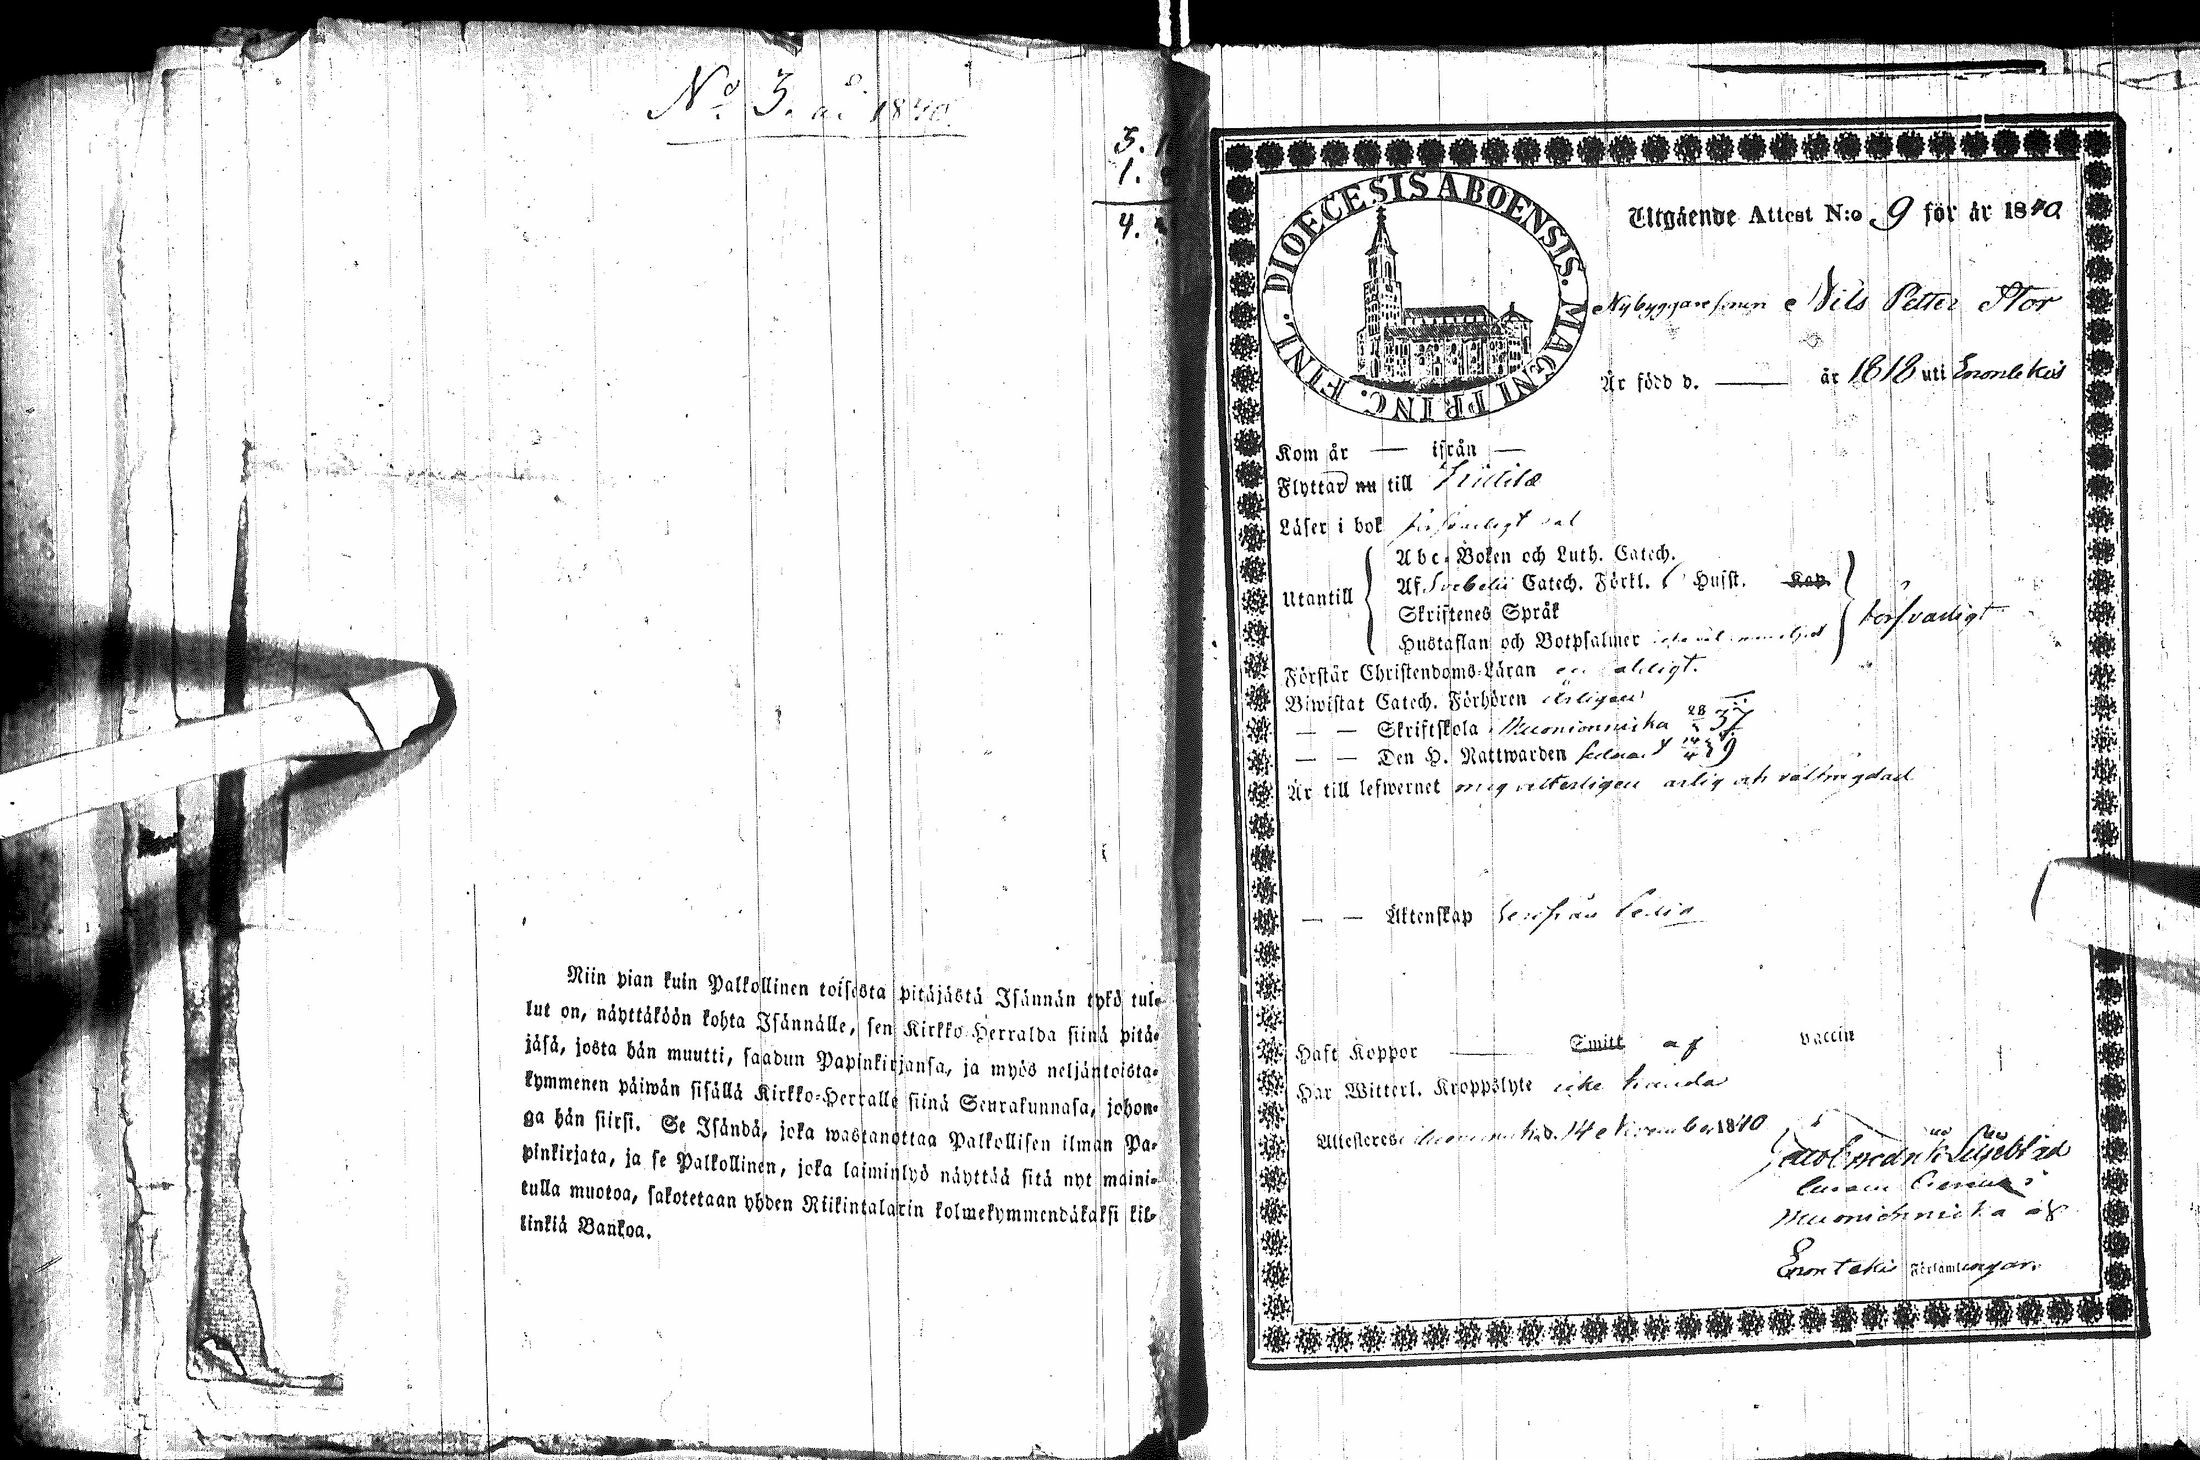 No 3. å. 1840.
3.
1.
4.
Niin pian kuin Palkollinen toisesta pitäjästä Isännän tykö tul-
lut on, näyttäköön kohta Isännälle, sen Kirkko-Herralda siinä pitä-
jäsä, josta hän muutti, saadun Papinkirjansa, ja myös neljäntoista-
kymmenen päiwän sisällä Kirkko-Herralle siinä Seurakunnasa, johon-
ga hän siirsi. Se Isändä, joka wastanottaa Palkollisen ilman Pa-
pinkirjata, ja se Palkollinen, joka laiminlyö näyttää sitä nyt maini-
tulla muotoa, sakotetaan yhden Riikintalarin kolmekymmendäkaksi kil-
linkiä Bankoa.
DIOECESIS ABOENSIS. MAGNI PRINC. FINL.
Utgående Attest N:o 9 för år 1840
Nybyggaresonen Nils Petter Stor
Är född d. — år 1818 uti Enontekis
Kom år — ifrån —
Flyttar nu till Kittilä
Läser i bok försvarligt
Utantill
Abc-Boken och Luth. Catech.
Af Svebelii Catech. Förkl. Husst. Kap.
Skriftenes Språk
Hustaflan och Botpsalmer
försvarligt
Förstår Christendoms-Läran
Biwistat Catech. Förhören årligen
— — Skriftskola Muonionniska 28 37
— — Den H. Nattwarden sednast 39
Är till lefwernet mig vetterligen ärlig och välfrägdad
— — Äktenskap ledig
Haft Koppor — Smitt af vaccin
Har Witterl. Kroppslyte icke kända
Attesteres d. 14 November 1840
Liljeblad
Muonionniska och
Enontekis Församlingar.